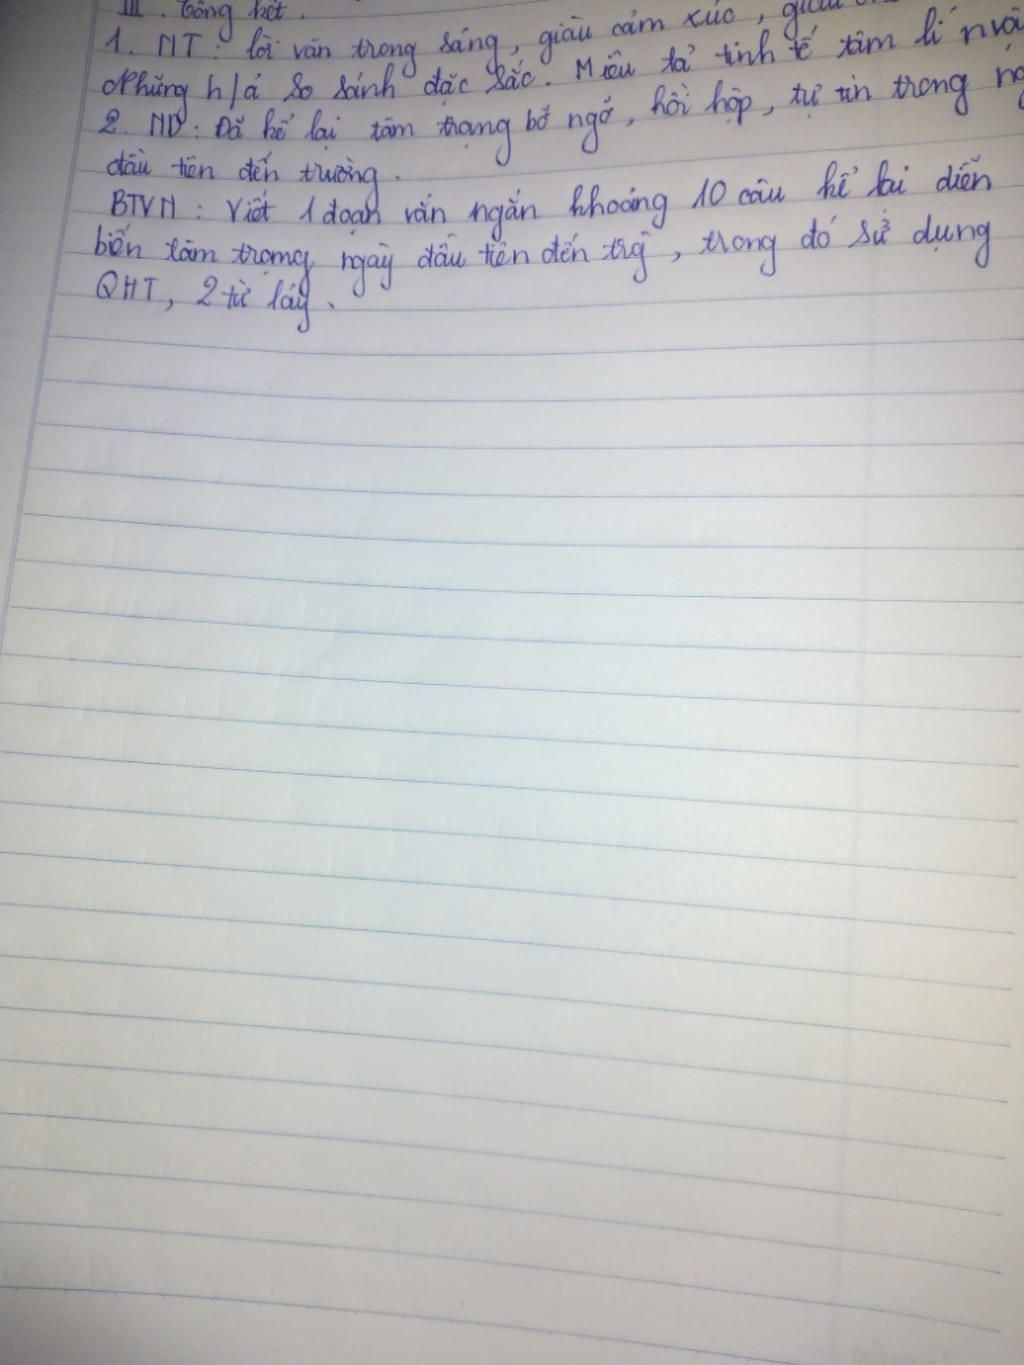 III. Tổng kết.
1. NT: lời văn trong sáng, giàu cảm xúc, giàu
Những h/á so sánh đặc sắc. Miêu tả tinh tế tâm lí
2. ND: Đã kể lại tâm trạng bỡ ngỡ, hồi hộp, tự tin trong
đầu tiên đến trường.
BTVN: Viết 1 đoạn văn ngắn khoảng 10 câu kể lại diễn
biến tâm trạng ngày đầu tiên đến trg, trong đó sử dụng
QHT, 2 từ láy.